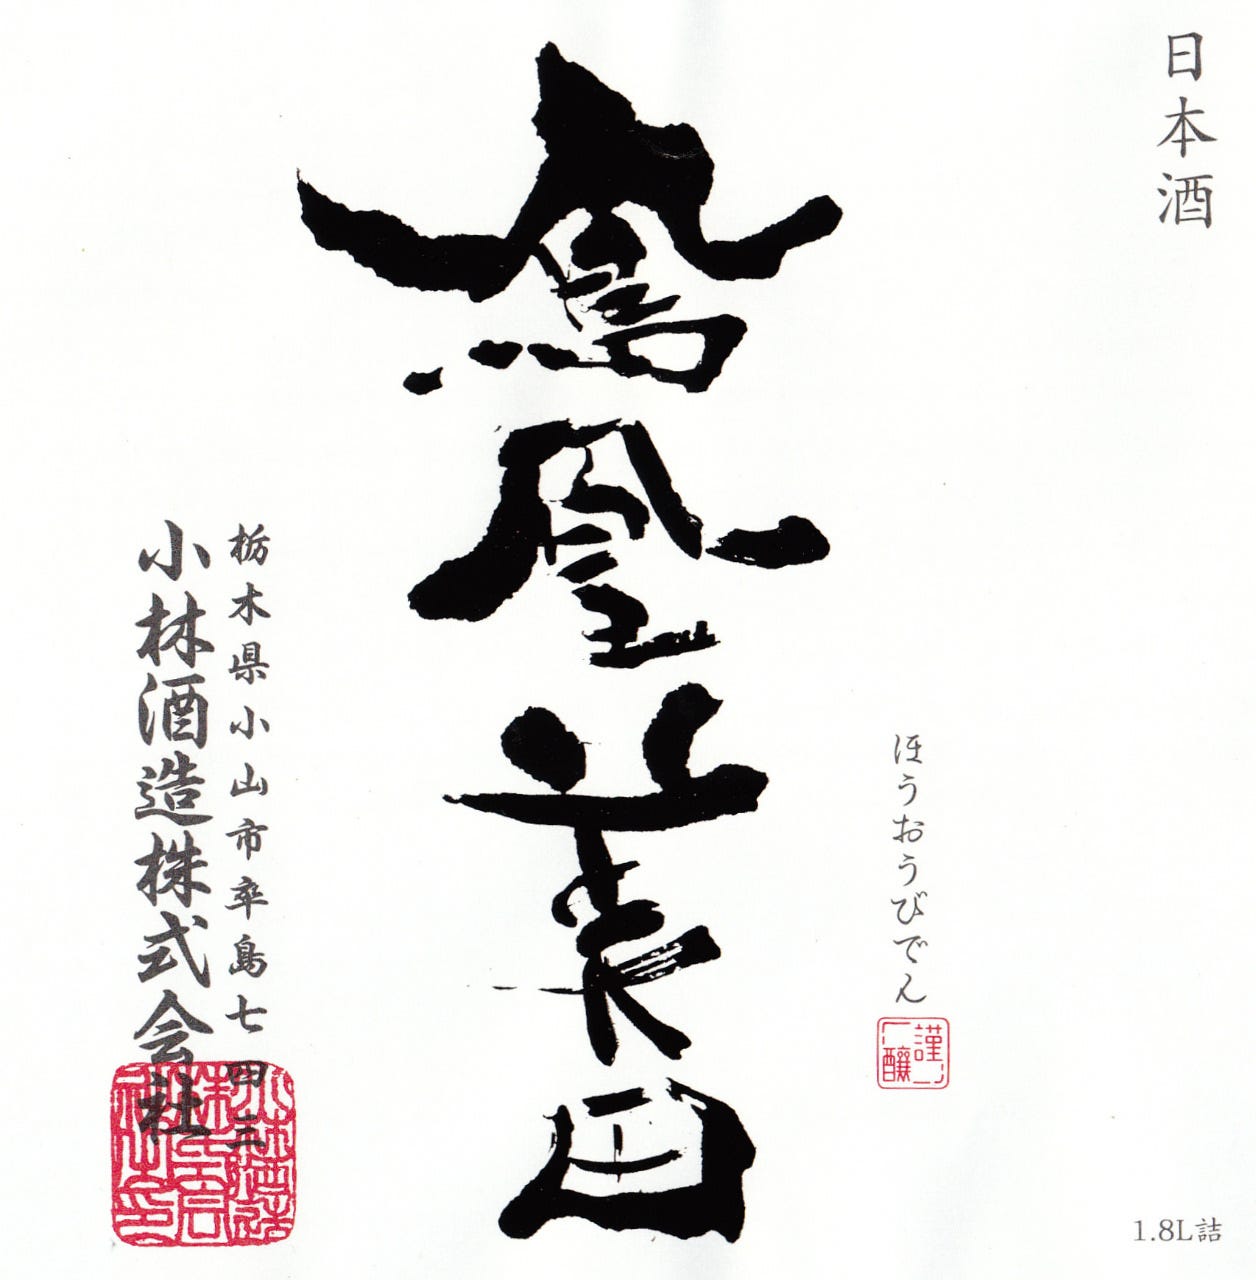 日本酒
ほうおうびでん
謹醸
鳳凰美田
栃木県小山市卒島七四三
小林酒造株式会社
小林酒造株式会社之印
1.8L詰